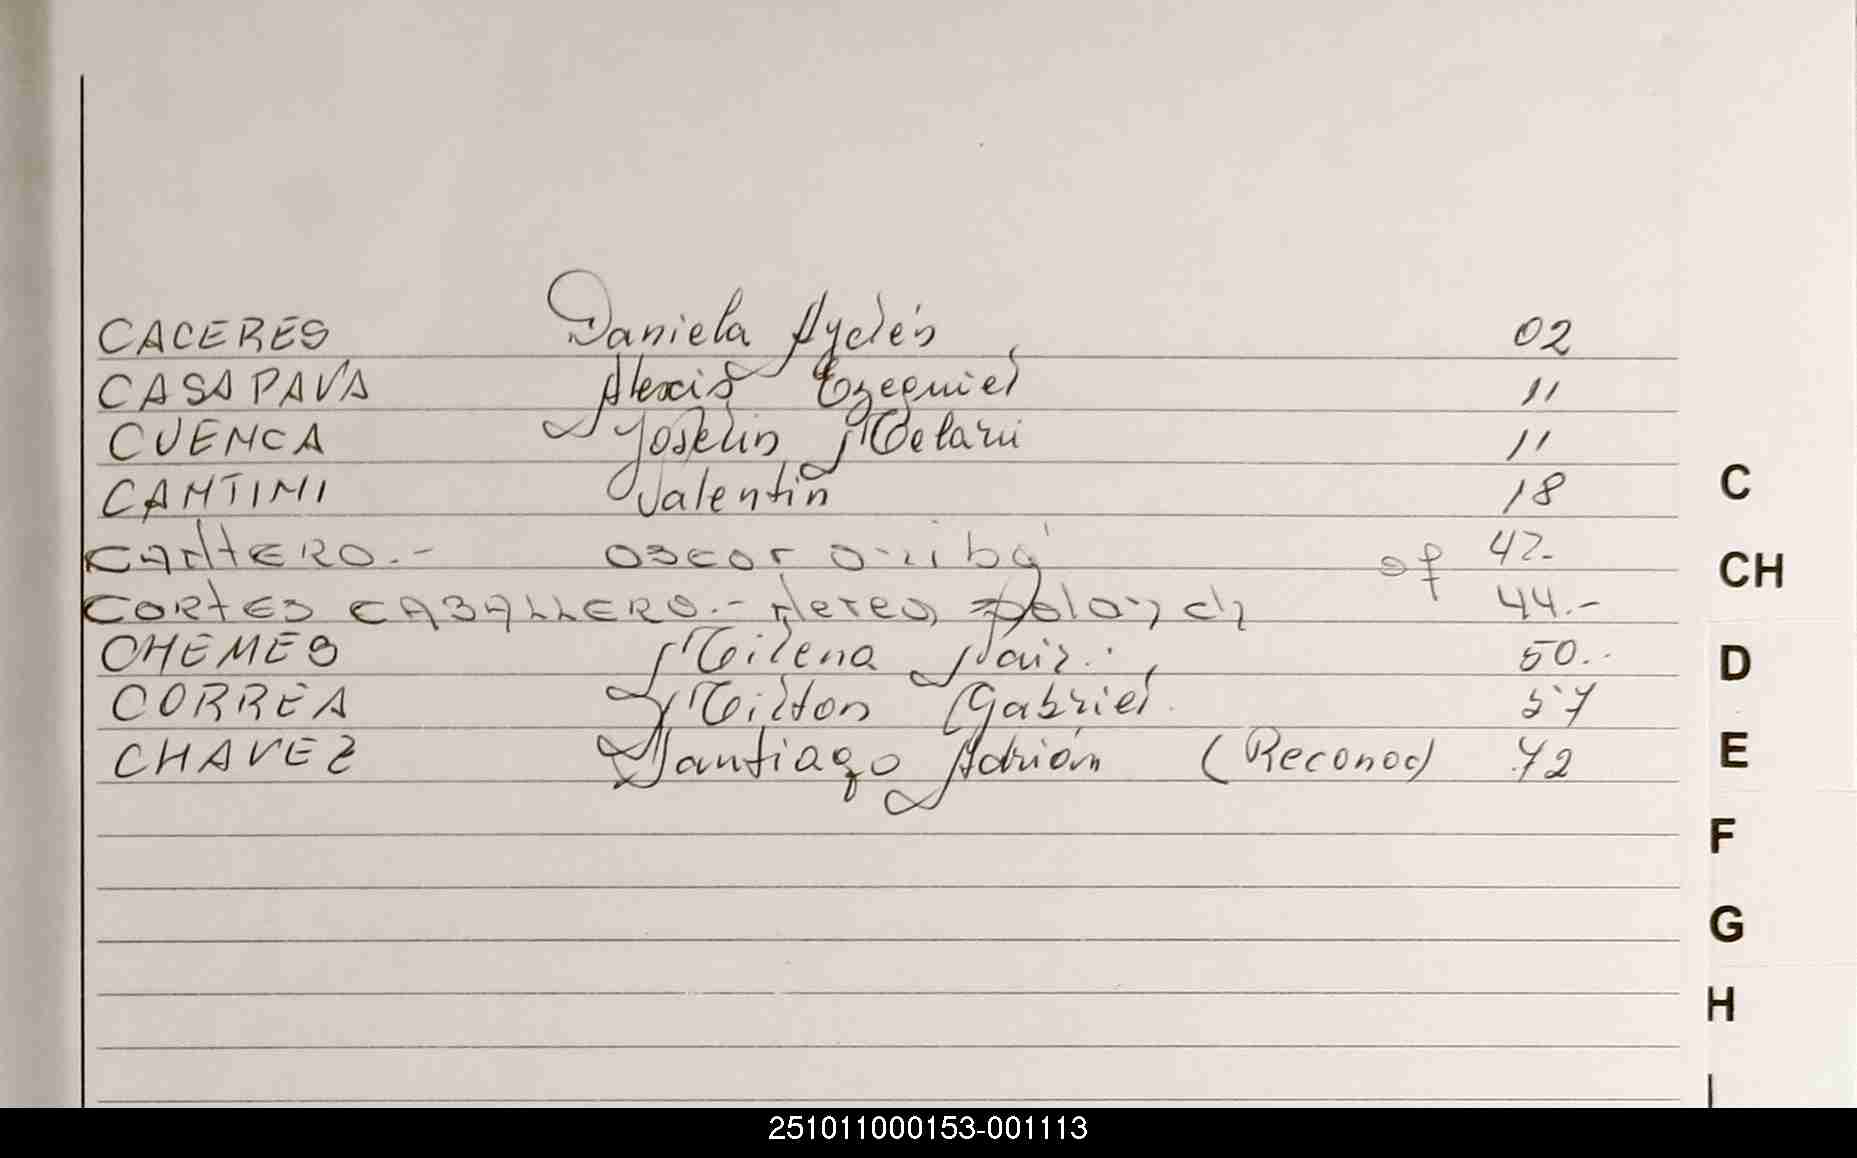 CACERES Daniela Aylén 02
CASAPAVA Alexis Ezequiel 11
CUENCA Joselin Melani 11
CANTINI Valentin 18
CANTERO.- oscar 42.-
CORTES CABALLERO.- 44.-
CHEMES Milena Nair. 50..
CORREA Milton Gabriel. 57
CHAVEZ Santiago Adrián (Reconoc) 72
C
CH
D
E
F
G
H
I
251011000153-001113